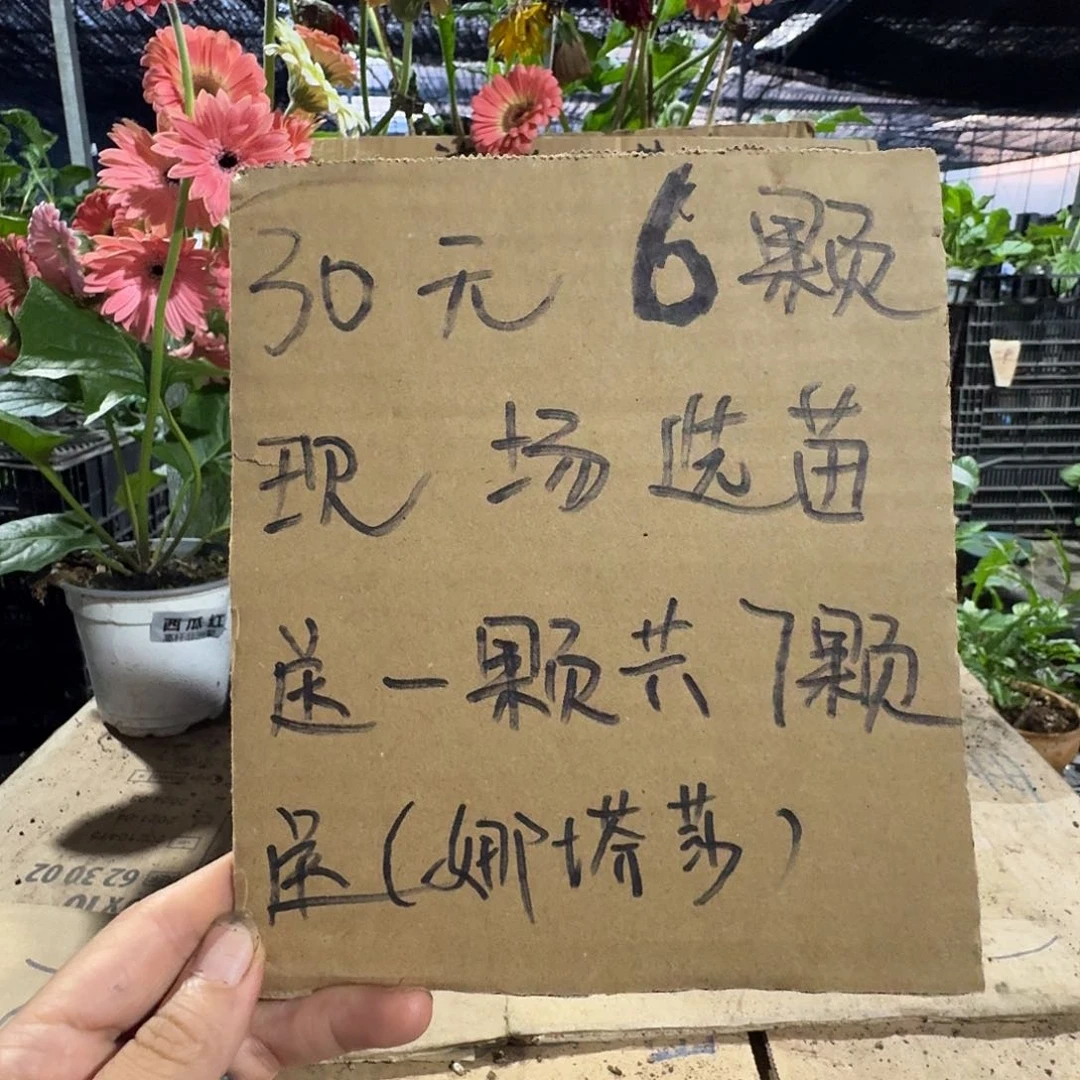 30元 6颗
现场选苗
送一颗共7颗
送(娜塔莎)
西瓜红
62 30 02